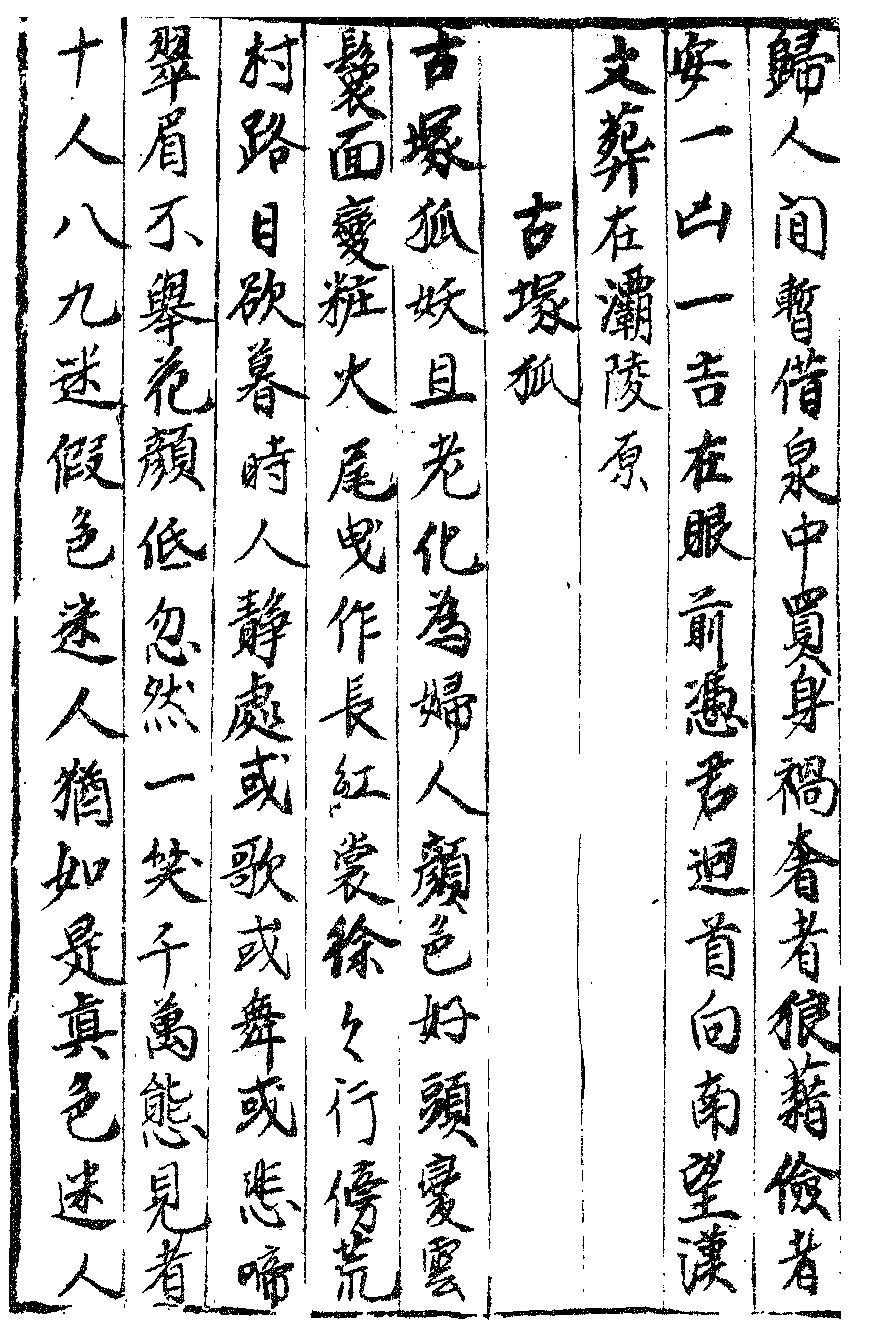 歸人間暫借泉中買身禍奢者狼藉儉者
安一凶一吉在眼前憑君迴首向南望漢
文葬在灞陵原
古塚狐
古塚狐妖且老化為婦人顏色好頭變雲
鬟面變粧火尾曳作長紅裳徐々行傍荒
村路日欲暮時人靜處或歌或舞或悲啼
翠眉不舉花顏低忽然一笑千萬態見者
十人八九迷假色迷人猶如是真色迷人